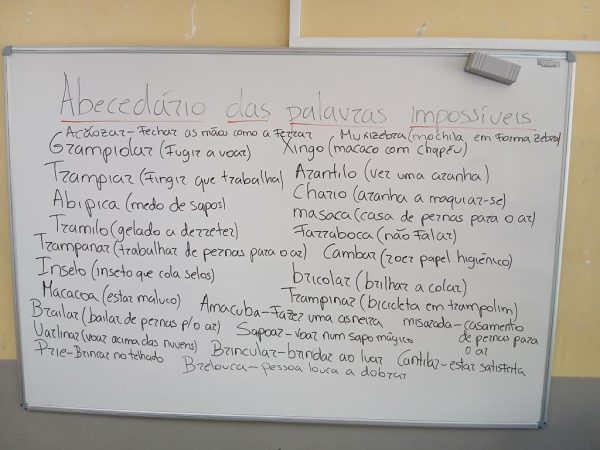 Abecedário das palavras impossíveis
Acrozar - Fechar as mãos como a Ferrar
Muxizebra (mochila em forma zebra)
Grampiolar (Fugir a voar)
Xingo (macaco com chapéu)
Trampiar (Fingir que trabalha)
Arantilo (ver uma aranha)
Abipica (medo de sapos)
Chario (aranha a maquiar-se)
Tramilo (gelado a derreter)
masaca (casa de pernas para o ar)
Farraboca (não Falar)
Trampanar (trabalhar de pernas para o ar)
Cambar (roer papel higiénico)
Inselo (inseto que cola selos)
bricolar (brilhar a colar)
Macacoa (estar maluco)
Trampinar (bicicleta em trampolim)
Brailar (bailar de pernas p/o ar)
Amacuba - Fazer uma asneira
misarada - casamento
de pernas para
o ar
Varlinar (voar acima das nuvens)
Sapoar - voar num sapo mágico
Prie - Brincar no telhado
Brincular - brindar ao luar
Cantilar - estar satisfeita
Brelouca - pessoa louca a dobrar